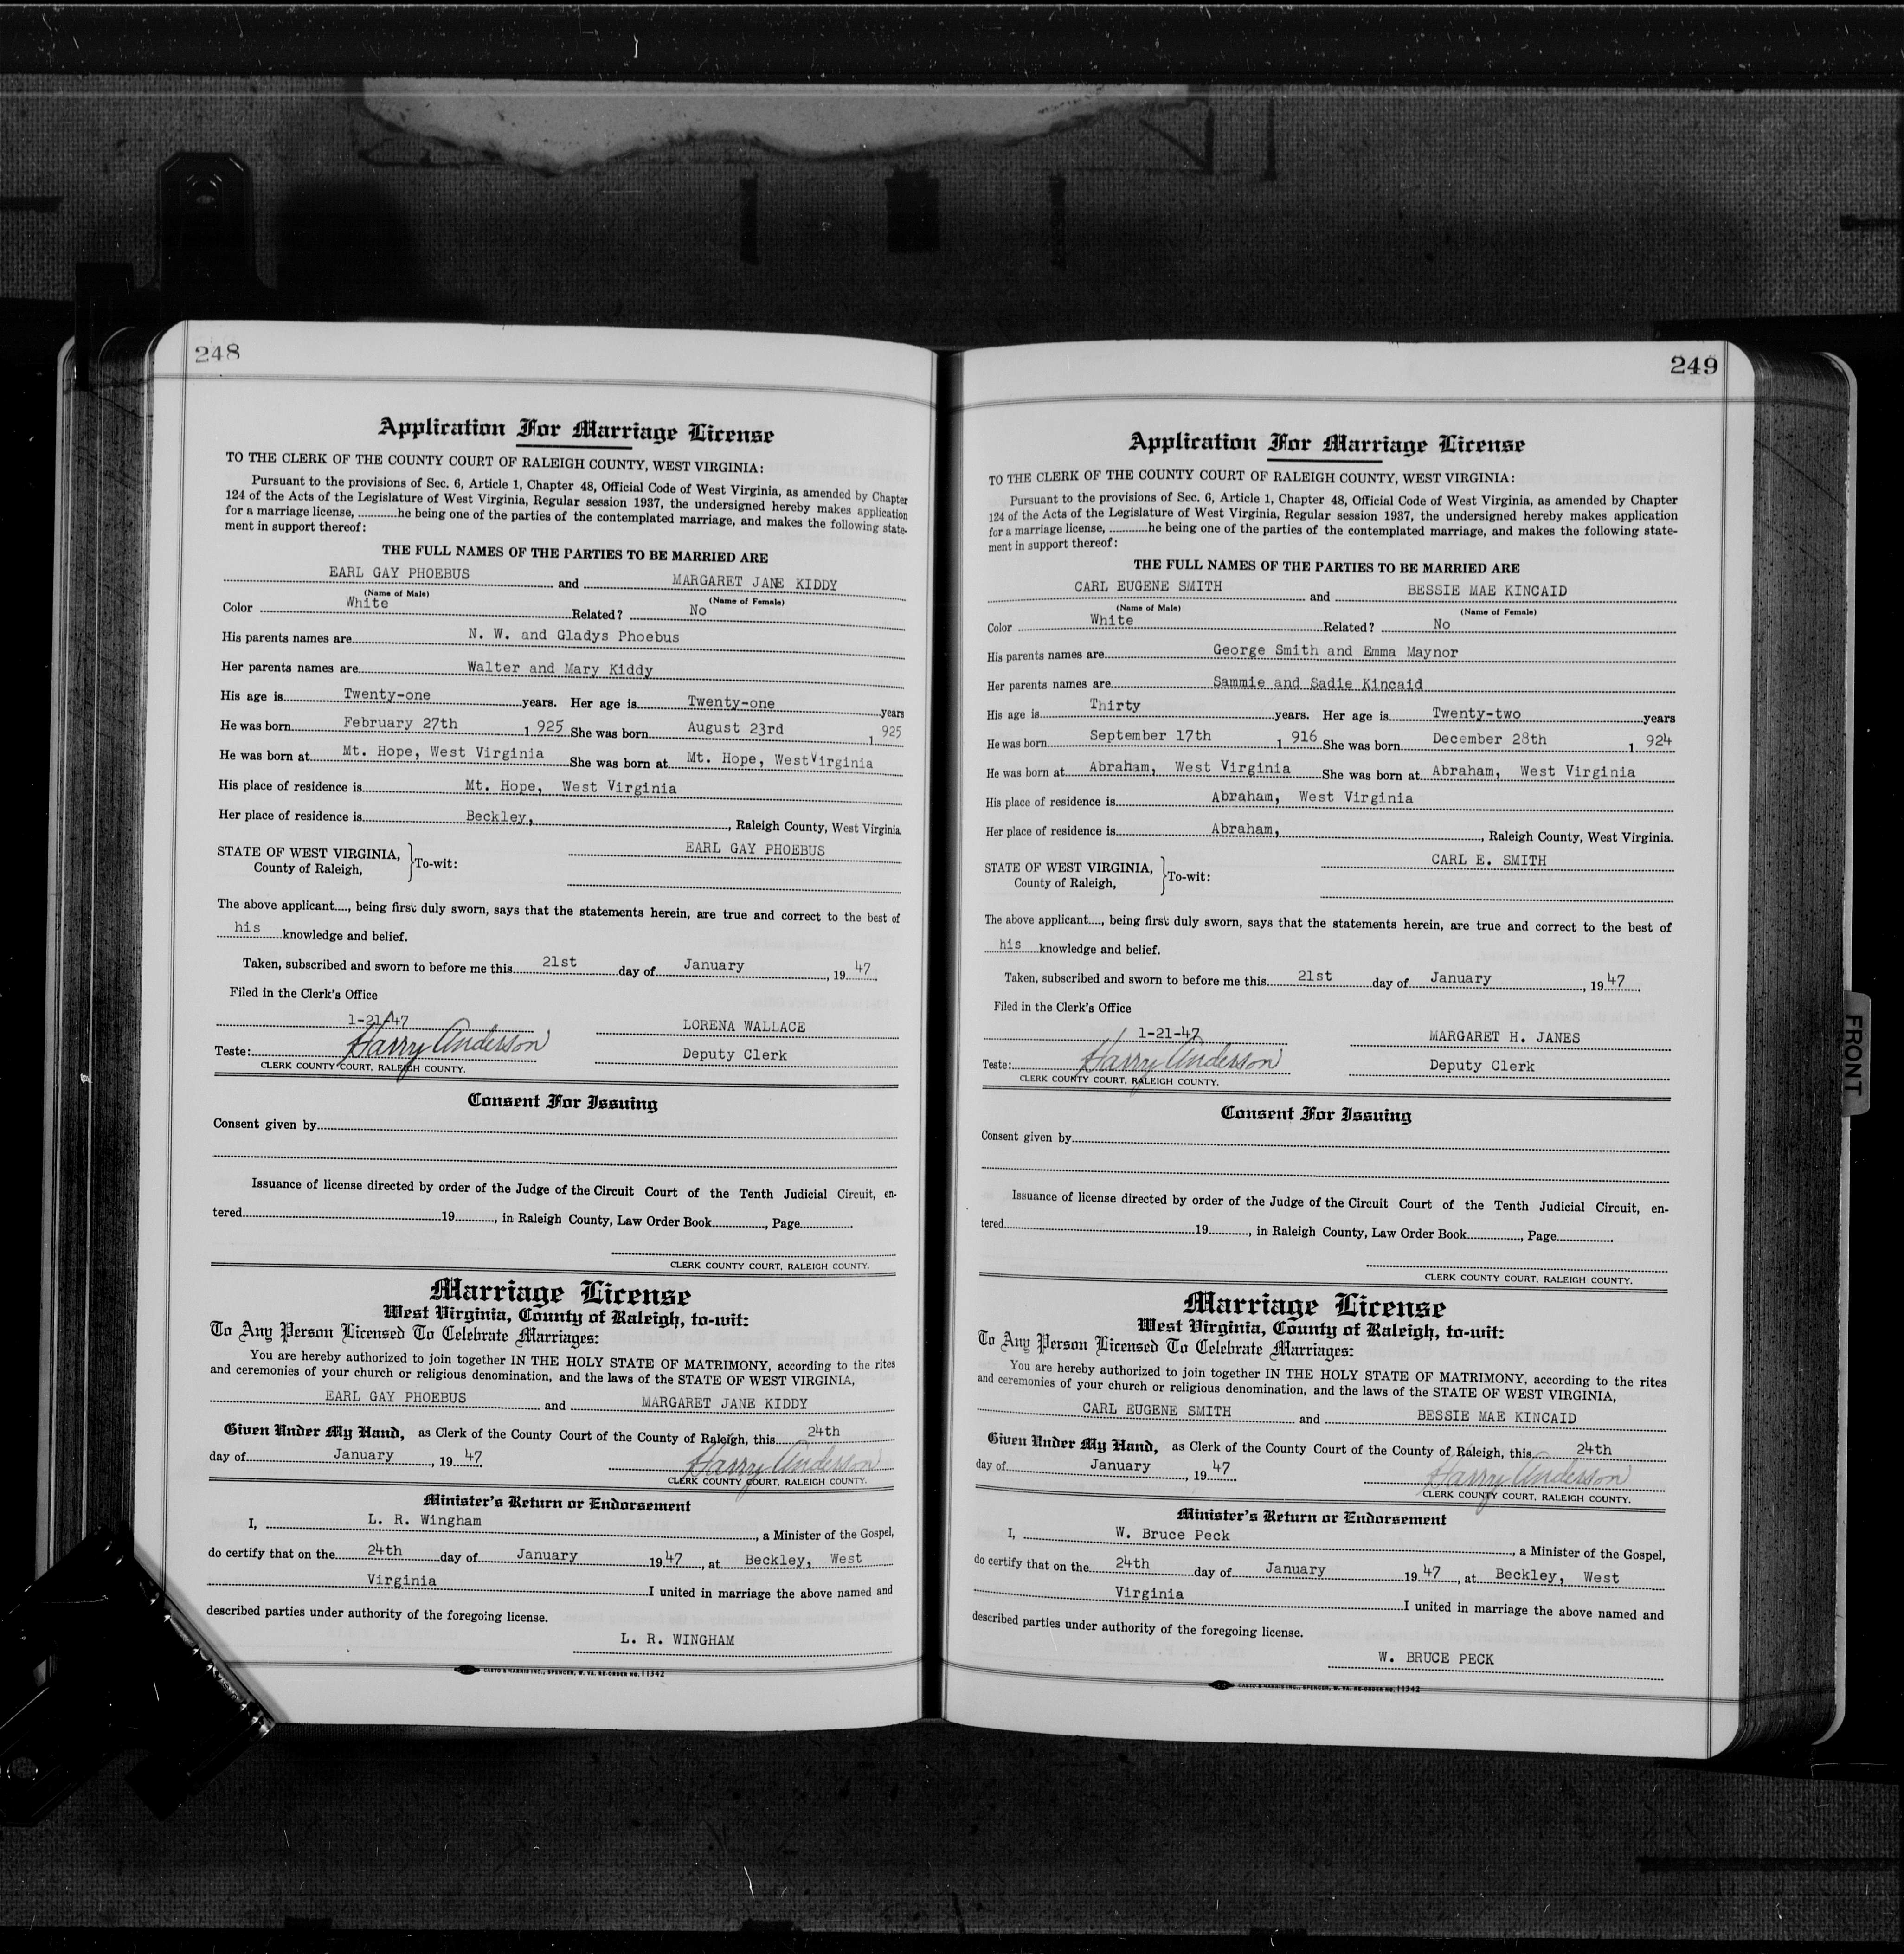 248
Application For Marriage License
TO THE CLERK OF THE COUNTY COURT OF RALEIGH COUNTY, WEST VIRGINIA:
Pursuant to the provisions of Sec. 6, Article 1, Chapter 48, Official Code of West Virginia, as amended by Chapter
124 of the Acts of the Legislature of West Virginia, Regular session 1937, the undersigned hereby makes application
for a marriage license, ............he being one of the parties of the contemplated marriage, and makes the following state-
ment in support thereof:
THE FULL NAMES OF THE PARTIES TO BE MARRIED ARE
EARL GAY PHOEBUS and MARGARET JANE KIDDY
(Name of Male) (Name of Female)
Color White Related? No
His parents names are N. W. and Gladys Phoebus
Her parents names are Walter and Mary Kiddy
His age is Twenty-one years. Her age is Twenty-one years
He was born February 27th 1 925 She was born August 23rd 1 925
He was born at Mt. Hope, West Virginia She was born at Mt. Hope, West Virginia
His place of residence is Mt. Hope, West Virginia
Her place of residence is Beckley, , Raleigh County, West Virginia.
EARL GAY PHOEBUS
STATE OF WEST VIRGINIA, } To-wit:
County of Raleigh,
The above applicant...., being first duly sworn, says that the statements herein, are true and correct to the best of
his knowledge and belief.
Taken, subscribed and sworn to before me this 21st day of January , 19 47
Filed in the Clerk's Office
1-21-47 LORENA WALLACE
Teste: Harry Anderson Deputy Clerk
CLERK COUNTY COURT, RALEIGH COUNTY.
Consent For Issuing
Consent given by
Issuance of license directed by order of the Judge of the Circuit Court of the Tenth Judicial Circuit, en-
tered 19 , in Raleigh County, Law Order Book , Page
CLERK COUNTY COURT, RALEIGH COUNTY.
Marriage License
West Virginia, County of Raleigh, to-wit:
To Any Person Licensed To Celebrate Marriages:
You are hereby authorized to join together IN THE HOLY STATE OF MATRIMONY, according to the rites
and ceremonies of your church or religious denomination, and the laws of the STATE OF WEST VIRGINIA,
EARL GAY PHOEBUS and MARGARET JANE KIDDY
Given Under My Hand, as Clerk of the County Court of the County of Raleigh, this 24th
day of January , 19 47 Harry Anderson
CLERK COUNTY COURT, RALEIGH COUNTY.
Minister's Return or Endorsement
I, L. R. Wingham , a Minister of the Gospel,
do certify that on the 24th day of January 19 47 , at Beckley, West
Virginia I united in marriage the above named and
described parties under authority of the foregoing license.
L. R. WINGHAM
CASTO & HARRIS INC., SPENCER, W. VA. RE-ORDER NO. 11342
249
Application For Marriage License
TO THE CLERK OF THE COUNTY COURT OF RALEIGH COUNTY, WEST VIRGINIA:
Pursuant to the provisions of Sec. 6, Article 1, Chapter 48, Official Code of West Virginia, as amended by Chapter
124 of the Acts of the Legislature of West Virginia, Regular session 1937, the undersigned hereby makes application
for a marriage license, ............he being one of the parties of the contemplated marriage, and makes the following state-
ment in support thereof:
THE FULL NAMES OF THE PARTIES TO BE MARRIED ARE
CARL EUGENE SMITH and BESSIE MAE KINCAID
(Name of Male) (Name of Female)
Color White Related? No
His parents names are George Smith and Emma Maynor
Her parents names are Sammie and Sadie Kincaid
His age is Thirty years. Her age is Twenty-two years
He was born September 17th 1 916 She was born December 28th 1 924
He was born at Abraham, West Virginia She was born at Abraham, West Virginia
His place of residence is Abraham, West Virginia
Her place of residence is Abraham, , Raleigh County, West Virginia.
CARL E. SMITH
STATE OF WEST VIRGINIA, } To-wit:
County of Raleigh,
The above applicant...., being first duly sworn, says that the statements herein, are true and correct to the best of
his knowledge and belief.
Taken, subscribed and sworn to before me this 21st day of January , 19 47
Filed in the Clerk's Office
1-21-47 MARGARET H. JANES
Teste: Harry Anderson Deputy Clerk
CLERK COUNTY COURT, RALEIGH COUNTY.
Consent For Issuing
Consent given by
Issuance of license directed by order of the Judge of the Circuit Court of the Tenth Judicial Circuit, en-
tered 19 , in Raleigh County, Law Order Book , Page
CLERK COUNTY COURT, RALEIGH COUNTY.
Marriage License
West Virginia, County of Raleigh, to-wit:
To Any Person Licensed To Celebrate Marriages:
You are hereby authorized to join together IN THE HOLY STATE OF MATRIMONY, according to the rites
and ceremonies of your church or religious denomination, and the laws of the STATE OF WEST VIRGINIA,
CARL EUGENE SMITH and BESSIE MAE KINCAID
Given Under My Hand, as Clerk of the County Court of the County of Raleigh, this 24th
day of January , 19 47 Harry Anderson
CLERK COUNTY COURT, RALEIGH COUNTY.
Minister's Return or Endorsement
I, W. Bruce Peck , a Minister of the Gospel,
do certify that on the 24th day of January 19 47 , at Beckley, West
Virginia I united in marriage the above named and
described parties under authority of the foregoing license.
W. BRUCE PECK
CASTO & HARRIS INC., SPENCER, W. VA. RE-ORDER NO. 11342
FRONT